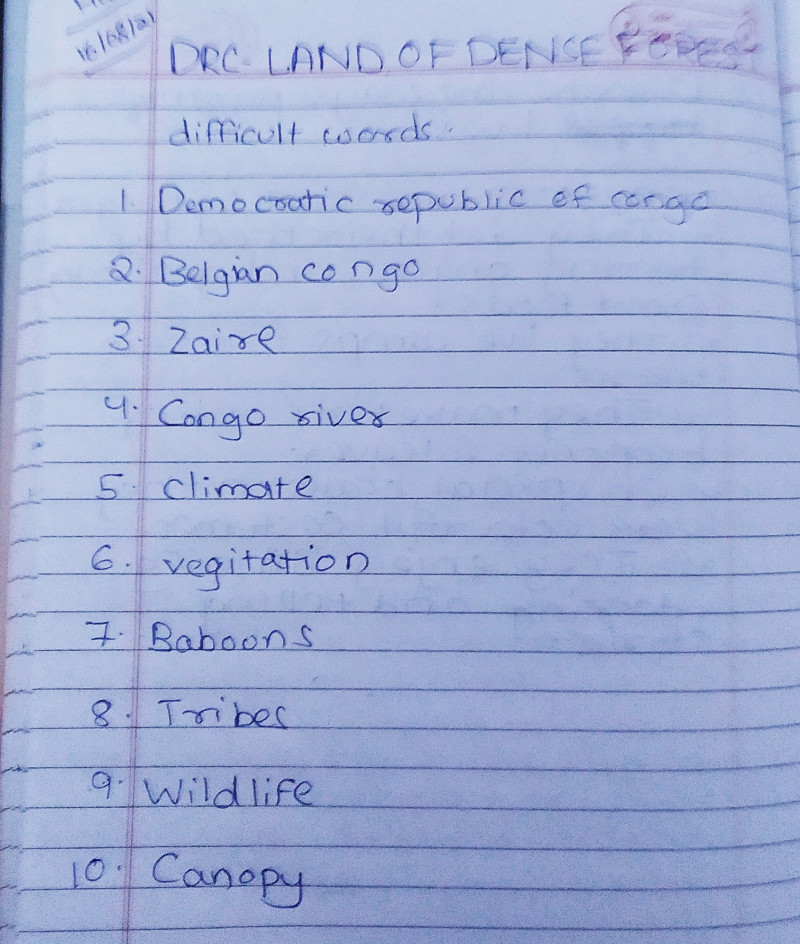 16/08/21
DRC- LAND OF DENSE FOREST
difficult words.
1. Democratic republic of congo
2. Belgian congo
3. Zaire
4. Congo river
5. climate
6. vegitation
7. Baboons
8. Tribes
9. Wildlife
10. Canopy